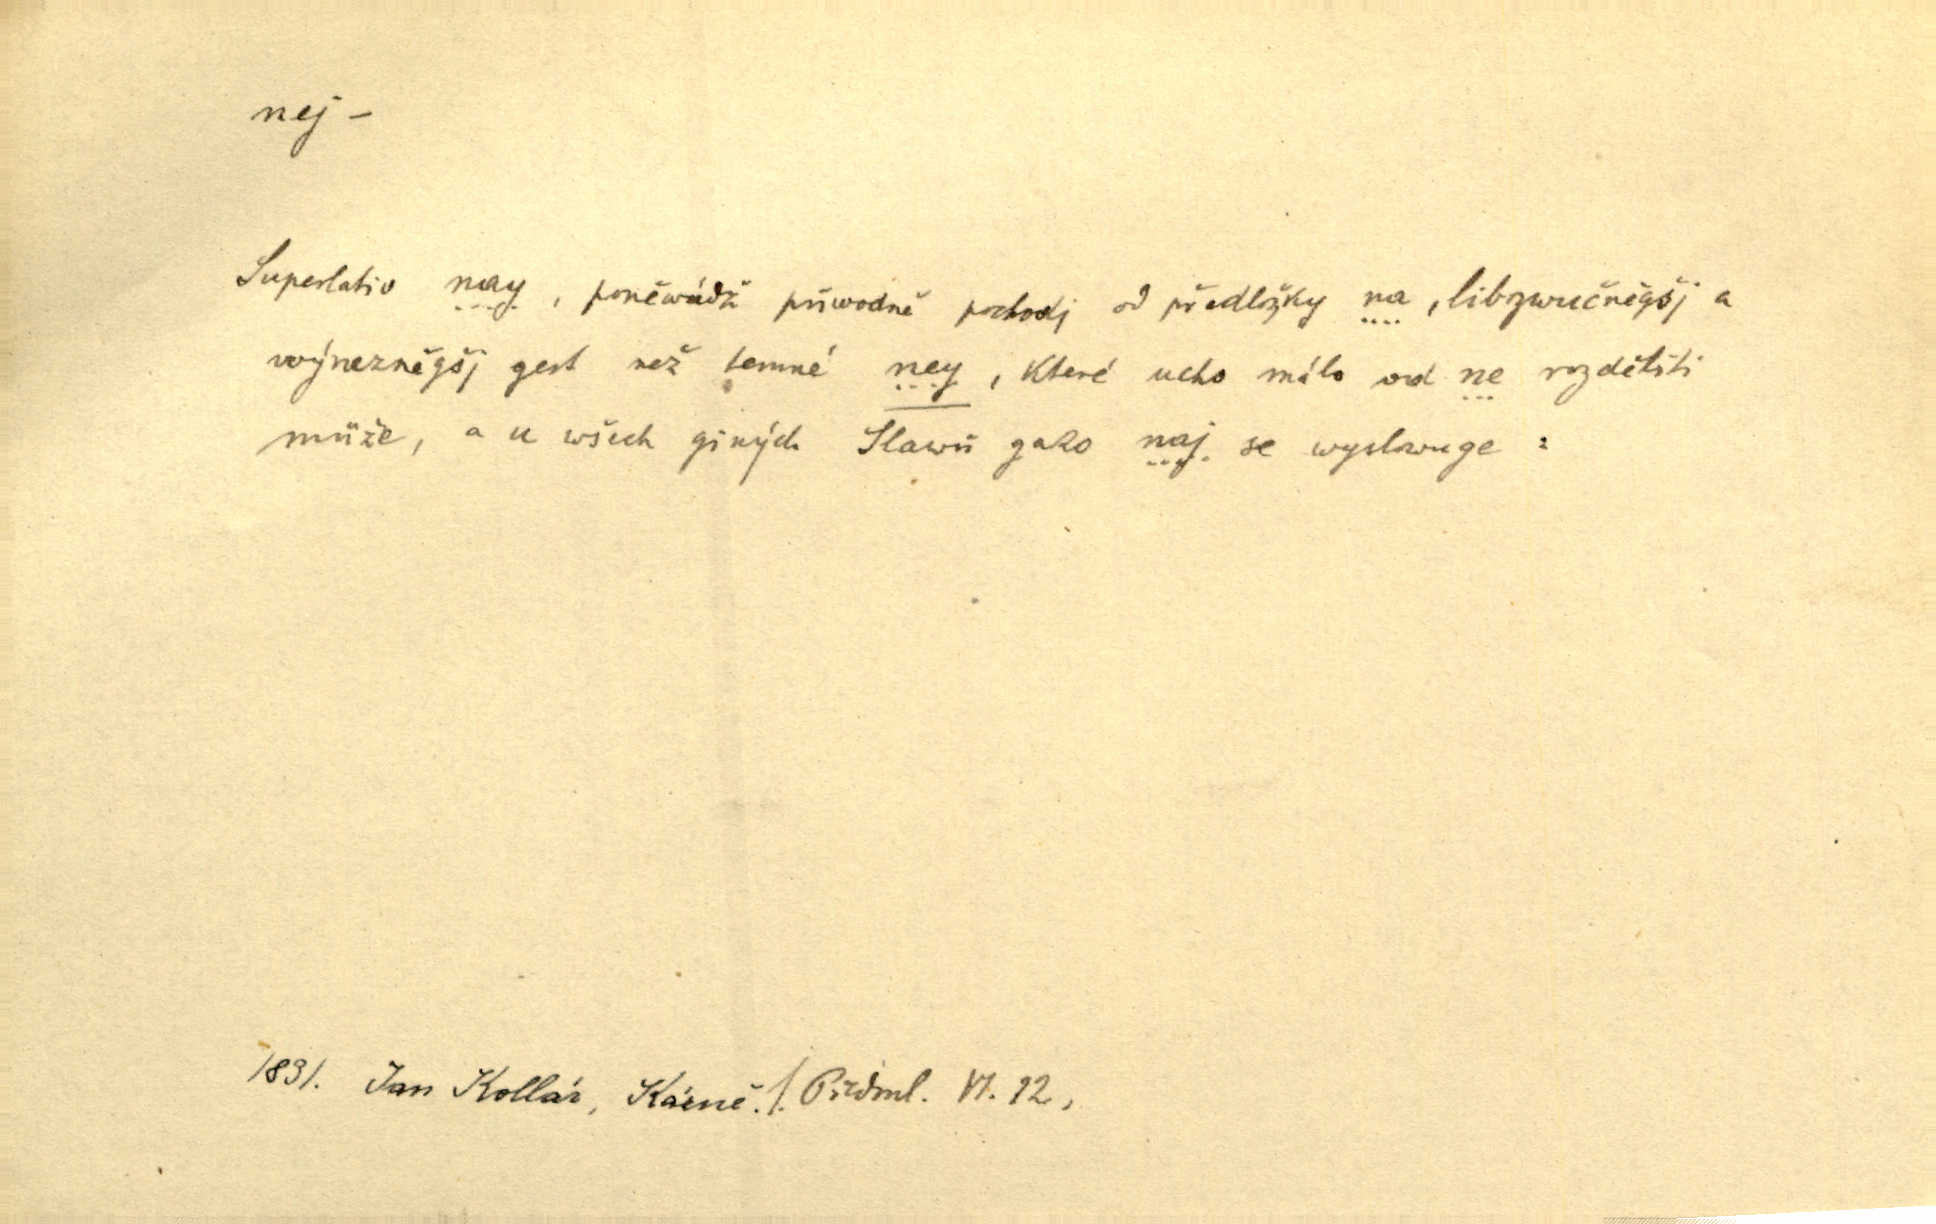 nej –
Superlativ nay, poněwádž půwodně pochodj od předložky na, libozwučněgšj a
wýrazněgšj gest než temné ney, které ucho málo od ne rozděliti
může, a u wšech giných Slawů gako naj se wyslowuge :
1831. Jan Kollár, Kázně. I. Předml. VI. 12,